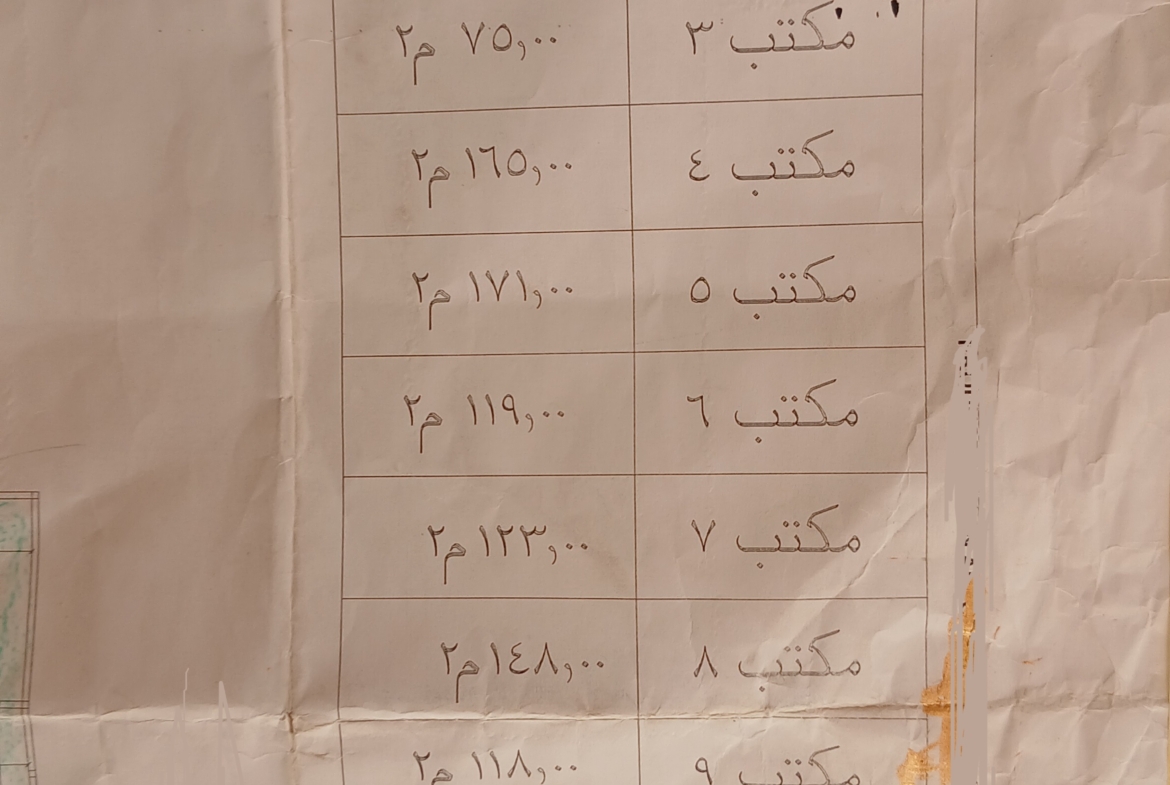 مكتب ٣ ٧٥,٠٠ م٢
مكتب ٤ ١٦٥,٠٠ م٢
مكتب ٥ ١٧١,٠٠ م٢
مكتب ٦ ١١٩,٠٠ م٢
مكتب ٧ ١٢٣,٠٠ م٢
مكتب ٨ ١٤٨,٠٠ م٢
مكتب ٩ ١١٨,٠٠ م٢